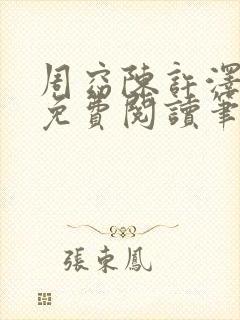 周窈陳許澤
免費閱讀筆
張東鳳